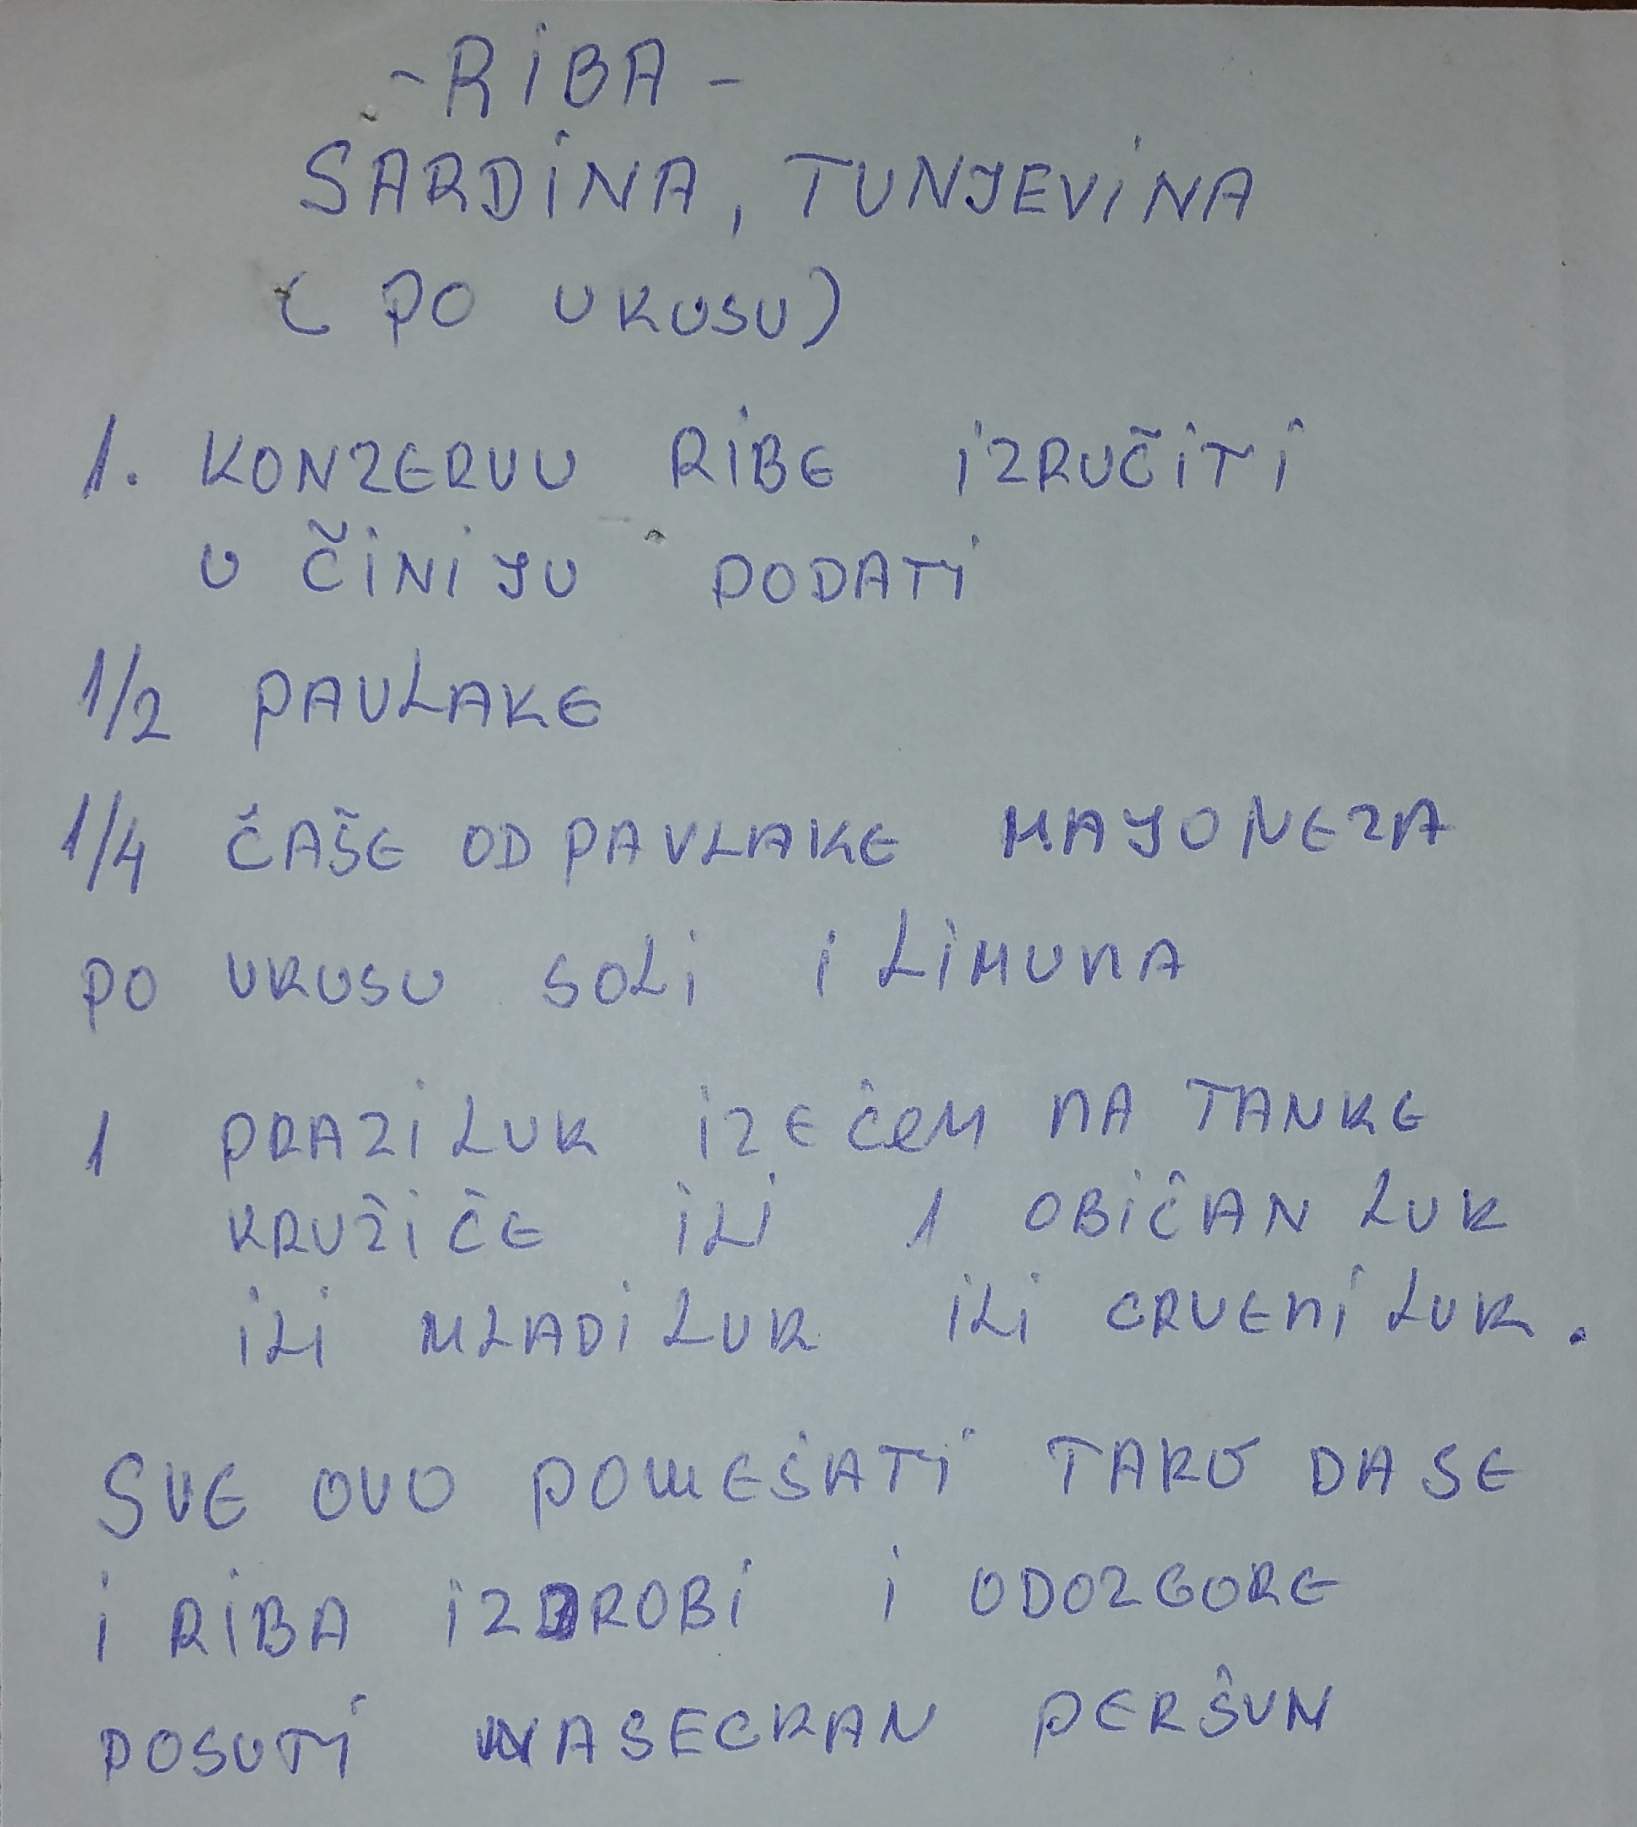 - RIBA -
SARDINA, TUNJEVINA
( PO UKUSU)
1. KONZERVU RIBE IZRUČITI
U ČINIJU PODATI
1/2 PAVLAKE
1/4 ČAŠE OD PAVLAKE MAJONEZA
PO UKUSU SOLI I LIMUNA
1 PRAZILUK IZEČEM NA TANKE
KRUŽIČE ILI 1 OBIČAN LUK
ILI MLADI LUK ILI CRVENI LUK.
SVE OVO POMEŠATI TAKO DA SE
I RIBA IZDROBI I ODOZGORE
POSUTI NASECKAN PERŠUN